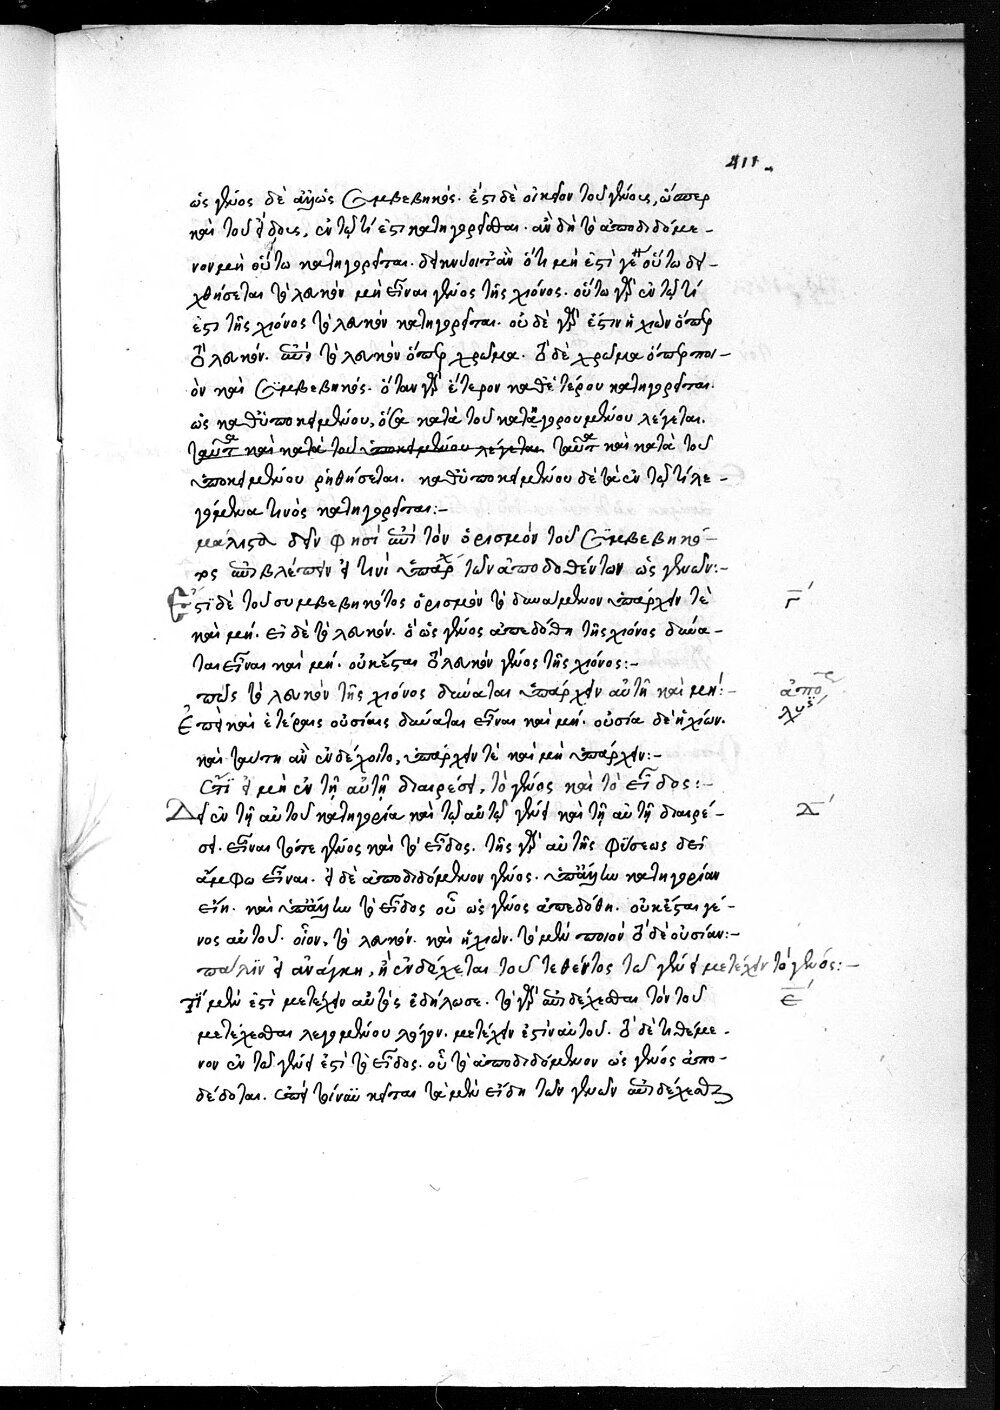 411
ὡς γένος δὲ ἀλλ' ὡς συμβεβηκός. ἔστι δὲ οἰκεῖον τοῦ γένους, ὥσπερ
καὶ τοῦ εἴδους, ἐν τῷ τί ἐστι κατηγορεῖσθαι. ἂν δὴ τὸ ἀποδιδόμε-
νον μὴ οὕτω κατηγορεῖται. ὅτι μὴ ἐστὶ οὕτω δει-
χθήσεται τὸ λευκὸν μὴ εἶναι γένος τῆς χιόνος. οὔτε γὰρ ἐν τῷ τί
ἐστι τῆς χιόνος τὸ λευκὸν κατηγορεῖται. οὐδὲ γὰρ ἐστιν ἡ χιὼν ὅπερ
τὸ λευκόν. τὸ λευκὸν ὅπερ χρῶμα. τὸ δὲ χρῶμα ὅπερ ποι-
ὸν καὶ συμβεβηκός. ὅταν γὰρ ἕτερον καθ' ἑτέρου κατηγορεῖται
ὡς καθ' ὑποκειμένου, ὅσα κατὰ τοῦ κατηγορουμένου λέγεται.
ταῦτα καὶ κατὰ τοῦ ὑποκειμένου λέγεται ταῦτα καὶ κατὰ τοῦ
ὑποκειμένου ῥηθήσεται. καθ' ὑποκειμένου δὲ τὰ ἐν τῷ τί λε-
γόμενα τινὸς κατηγορεῖται:-
μάλιστα δεῖν φησὶ ἐπὶ τὸν ὁρισμὸν τοῦ συμβεβηκό-
τος ἐπιβλέπειν εἰ τινὶ ὑπάρχει τῶν ἀποδοθέντων ὡς γενῶν:-
Ἔστι δὲ τοῦ συμβεβηκότος ὁρισμὸν τὸ δυνάμενον ὑπάρχειν τὲ Γ
καὶ μή. εἰ δὲ τὸ λευκὸν. ὃ ὡς γένος ἀπεδόθη τῆς χιόνος δύνα-
ται εἶναι καὶ μή. οὐκ ἔσται τὸ λευκὸν γένος τῆς χιόνος:-
πῶς τὸ λευκὸν τῆς χιόνος δύναται ὑπάρχειν αὐτῇ καὶ μή:-
Ἐπεὶ καὶ ἑτέραις οὐσίαις δύναται εἶναι καὶ μή. οὐσία δὲ ἡ χιών.
καὶ ταύτῃ ἂν ἐνδέχοιτο, ὑπάρχειν τὲ καὶ μὴ ὑπάρχειν:-
ἔτι εἰ μὴ ἐν τῇ αὐτῇ διαιρέσει, τὸ γένος καὶ τὸ εἶδος:-
Δεῖ ἐν τῇ αὐτοῦ κατηγορίᾳ καὶ τῷ αὐτῷ γένει καὶ τῇ αὐτῇ διαιρέ- Δ
σει. εἶναι τό τε γένος καὶ τὸ εἶδος. τῆς γὰρ αὐτῆς φύσεως δεῖ
ἄμφω εἶναι. εἰ δὲ ἀποδιδόμενον γένος. ὑπ' ἄλλην κατηγορίαν
εἴη. καὶ ὑπ' ἄλλην τὸ εἶδος οὗ ὡς γένος ἀπεδόθη. οὐκ ἔσται γέ-
νος αὐτοῦ. οἷον, τὸ λευκὸν. καὶ ἡ χιών. τὸ μὲν ποιὸν ἡ δὲ οὐσίαν:-
πάλιν εἰ ἀνάγκη, ἢ ἐνδέχεται τοῦ τεθέντος τῷ γένει μετέχειν τὸ γένος:-
Τί μέν ἐστι μετέχειν αὐτὸς ἐδήλωσε. τὸ γὰρ ἐπιδέχεσθαι τὸν τοῦ Ε
μετέχεσθαι λεγομένου λόγον. μετέχειν ἐστὶν αὐτοῦ. τὸ δὲ τιθέμε-
νον ἐν τῷ γένει ἐστὶ τὸ εἶδος. οὗ τὸ ἀποδιδόμενον ὡς γένος ἀπο-
δέδοται. τὰ μὲν εἴδη τῶν γενῶν ἐπιδέχεσθαι